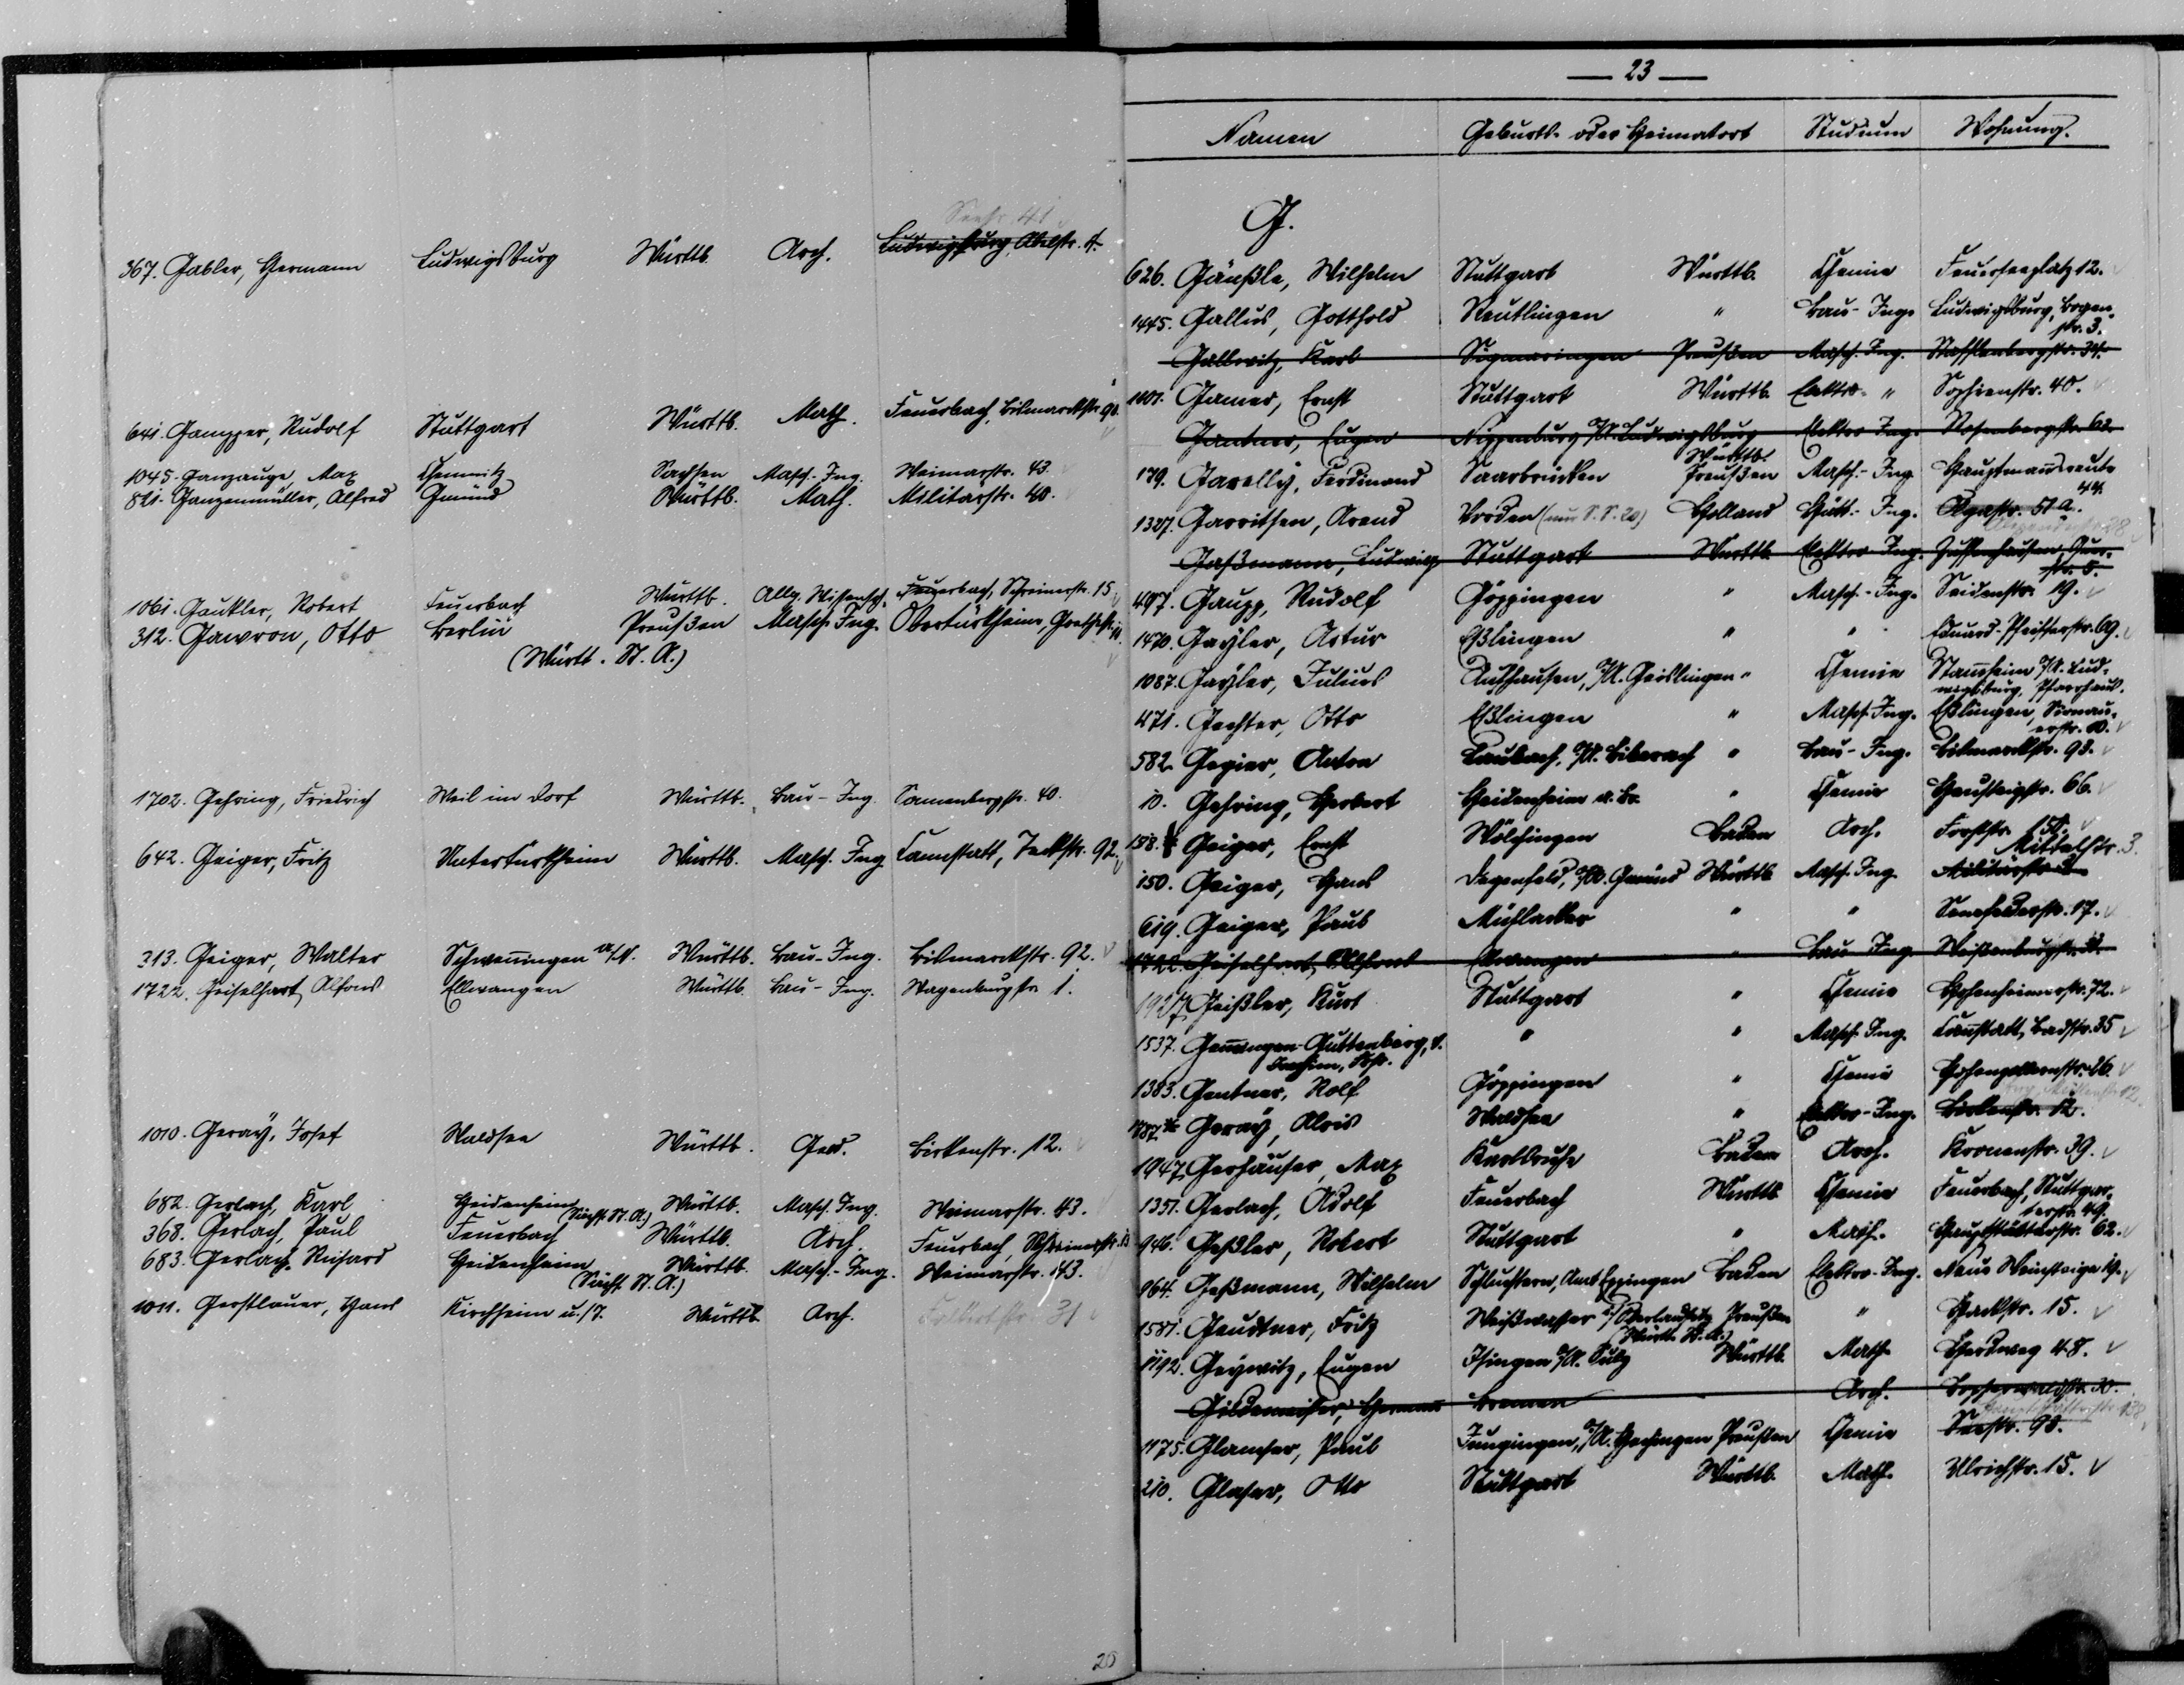 Seestr. 41
367. Gabler, Hermann Ludwigsburg Württb. Arch. Ludwigsburg, Abelstr. 4.
641. Gampper, Rudolf Stuttgart Württb. Math. Feuerbach, Bismarckstr. 90.
1045. Ganzauge, Max Chemnitz Sachsen Masch. Ing. Weimarstr. 43.
821. Ganzenmüller, Alfred Gmünd Württb. Math. Militärstr. 40.
1061. Gaukler, Robert Feuerbach Württb. Allg. Wissensch. Feuerbach, Schreinerstr. 15
312. Gawron, Otto Berlin Preußen Masch. Ing. Obertürkheim, Goethestr.
(Württ. St. A.)
1702. Gehring, Friedrich Weil im Dorf Württb. Bau-Ing. 40.
642. Geiger, Fritz Untertürkheim Württb. Masch. Ing. Cannstatt, Teckstr. 92.
313. Geiger, Walter Schwenningen a/N. Württb. Bau-Ing. Bismarckstr. 92.
1722. Geiselhart, Alfons Ellwangen Württb. Bau-Ing. Wagenburgstr. 1.
1010. Geray, Josef Waldsee Württb. Geod. Birkenstr. 12.
682. Gerlach, Karl Heidenheim Württb. Masch. Ing. Weimarstr. 43.
(Sächs. St. A.)
368. Gerlach, Paul Feuerbach Württb. Arch. Feuerbach, Schreinerstr. 13
683. Gerlach, Richard Heidenheim Württb. Masch.-Ing. Weimarstr. 43.
(Sächs. St. A.)
1011. Gerstlauer, Hans Kirchheim u./T. Württb. Arch. 31
20
— 23 —
Namen Geburts- oder Heimatort Studium Wohnung.
G.
626. Gänßle, Wilhelm Stuttgart Württb. Chemie Feuerseeplatz 12.
1445. Gallus, Gotthold Reutlingen " Bau-Ing. Ludwigsburg, Bogen-
str. 3.
Gallwitz, Karl Sigmaringen Preußen Masch. Ing. Stafflenbergstr. 34.
1101. Gamer, Ernst Stuttgart Württb. Elektro- " Sophienstr. 40.
Gantner, Eugen Nippenburg O/A. Ludwigsburg Württb. Elektro Ing. Rosenbergstr. 62.
179. Garelly, Ferdinand Saarbrücken Preußen Masch.-Ing. Hauptmannsreute
44.
1327. Garritsen, Arend Vorden (nur S. S. 20) Holland Hütt.-Ing. Olgastr. 51 A.
Gaßmann, Ludwig Stuttgart Württb. Elektro Ing. Zuffenhausen,
str. 5.
497. Gaupp, Rudolf Göppingen " Masch.-Ing. Seidenstr. 19.
1470. Gayler, Artur Eßlingen " " Eduard-Pfeifferstr. 69.
1087. Gayler, Julius Aufhausen, O/A. Geislingen " Chemie Stammheim O/A. Lud-
wigsburg, Pfarrhaus.
471. Gechter, Otto Eßlingen " Masch. Ing. Eßlingen, Sirnau-
erstr.
582. Gegier, Anton Laubach, O/A. Biberach " Bau-Ing. Bismarckstr. 93.
10. Gehring, Herbert Heidenheim a. Br. " Chemie Hausteigstr. 66.
158. Geiger, Ernst Wölchingen Baden Arch. Forststr.
Mittelstr. 3.
150. Geiger, Hans Degenfeld, O/A. Gmünd Württb. Masch. Ing. Militärstr.
619. Geiger, Paul Mühlacker " " Senefelderstr. 17.
1722. Geiselhart, Alfons Ellwangen " Bau Ing.
1927 Geißler, Kurt Stuttgart " Chemie Hohenheimerstr. 72.
1537. Gemmingen-Guttenberg, v. " " Masch. Ing. Cannstatt, Badstr. 35
Joachim, Frhr.
1383. Gentner, Rolf Göppingen " Chemie Hohenzollernstr. 26.
787. Geray, Alois Waldsee " Elektro-Ing. Birkenstr. 12.
1947 Gerhäuser, Max Karlsruhe Baden Arch. Kronenstr. 39.
1351. Gerlach, Adolf Feuerbach Württb. Chemie Feuerbach, Stuttgar-
terstr. 49.
946. Geßler, Robert Stuttgart " Math. Hauptstätterstr. 62.
964. Geßmann, Wilhelm Schluchtern, Amt Eppingen Baden Elektro-Ing. Neue Weinsteige 19.
1581. Geudtner, Fritz Weißwasser i/Oberlausitz Preußen " Hackstr. 15.
(Württ. St. A.)
1192. Geywitz, Eugen Isingen O/A. Sulz Württb. Math. Herdweg 48.
Gildemeister, Hermann Bremen Arch. Bopserwaldstr. 30.
1175. Glamser, Paul Jungingen, O/A. Hechingen Preußen Chemie Seestr. 90.
210. Glaser, Otto Stuttgart Württb. Math. Ulrichstr. 15.